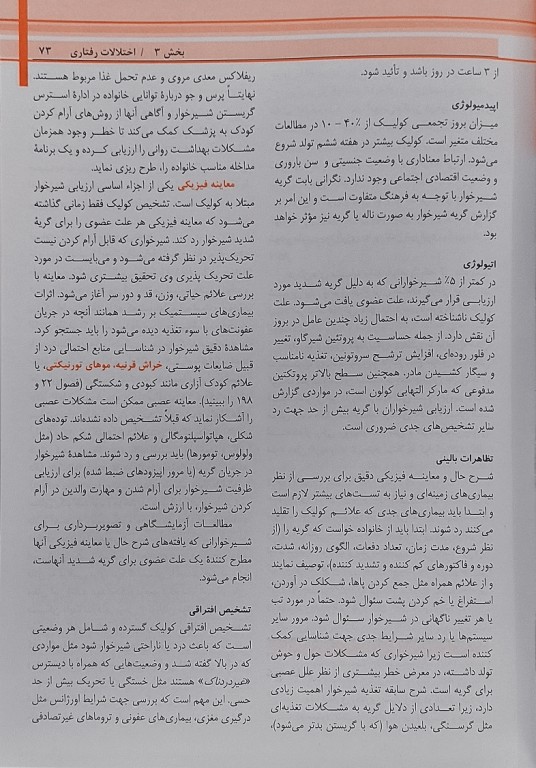 بخش ۳ / اختلالات رفتاری ۷۳
از ۳ ساعت در روز باشد و تأئید شود.
اپیدمیولوژی
میزان بروز تجمعی کولیک از ۴۰٪ – ۱۰ در مطالعات
مختلف متغیر است. کولیک بیشتر در هفته ششم تولد شروع
می‌شود. ارتباط معناداری با وضعیت جنسیتی و سن باروری
و وضعیت اقتصادی اجتماعی وجود ندارد. نگرانی بابت گریه
شیرخوار با توجه به فرهنگ متفاوت است و این امر بر
گزارش گریه شیرخوار به صورت ناله یا گریه نیز مؤثر خواهد
بود.
اتیولوژی
در کمتر از ۵٪ شیرخوارانی که به دلیل گریه شدید مورد
ارزیابی قرار می‌گیرند، علت عضوی یافت می‌شود. علت
کولیک ناشناخته است، به احتمال زیاد چندین عامل در بروز
آن نقش دارد. از جمله حساسیت به پروتئین شیرگاو، تغییر
در فلور روده‌ای، افزایش ترشح سروتونین، تغذیه نامناسب
و سیگار کشیدن مادر. همچنین سطح بالاتر پروتکتین
مدفوعی که مارکر التهابی کولون است، در مواردی گزارش
شده است. ارزیابی شیرخواران با گریه بیش از حد جهت رد
سایر تشخیص‌های جدی ضروری است.
تظاهرات بالینی
شرح حال و معاینه فیزیکی دقیق برای بررسی از نظر
بیماری‌های زمینه‌ای و نیاز به تست‌های بیشتر لازم است
و ابتدا باید بیماری‌های جدی که علائم کولیک را تقلید
می‌کنند رد شوند. ابتدا باید از خانواده خواست که گریه را (از
نظر شروع، مدت زمان، تعداد دفعات، الگوی روزانه، شدت،
دوره و فاکتورهای کم کننده و تشدید کننده)، توصیف نمایند
و از علائم همراه مثل جمع کردن پاها، شکلک در آوردن،
استفراغ یا خم کردن پشت سئوال شود. حتماً در مورد تب
یا هر تغییر ناگهانی در شیرخوار سئوال شود. مرور سایر
سیستم‌ها یا رد سایر شرایط جدی جهت شناسایی کمک
کننده است زیرا شیرخواری که مشکلات حول و حوش
تولد داشته، در معرض خطر بیشتری از نظر علل عصبی
برای گریه است. شرح سابقه تغذیه شیرخوار اهمیت زیادی
دارد، زیرا تعدادی از دلایل گریه به مشکلات تغذیه‌ای
مثل گرسنگی، بلعیدن هوا (که با گریستن بدتر می‌شود)،
ریفلاکس معدی مروی و عدم تحمل غذا مربوط هستند.
نهایتاً پرس و جو دربارهٔ توانایی خانواده در ادارهٔ استرس
گریستن شیرخوار و آگاهی آنها از روش‌های آرام کردن
کودک به پزشک کمک می‌کند تا خطر وجود همزمان
مشکلات بهداشت روانی را ارزیابی کرده و یک برنامهٔ
مداخله مناسب خانواده را، طرح ریزی نماید.
معاینه فیزیکی یکی از اجزاء اساسی ارزیابی شیرخوار
مبتلا به کولیک است. تشخیص کولیک فقط زمانی گذاشته
می‌شود که معاینه فیزیکی هر علت عضوی را برای گریهٔ
شدید شیرخوار رد کند. شیرخواری که قابل آرام کردن نیست
تحریک‌پذیر در نظر گرفته می‌شود و می‌بایست در مورد
علت تحریک پذیری وی تحقیق بیشتری شود. معاینه با
بررسی علائم حیاتی، وزن، قد و دور سر آغاز می‌شود. اثرات
بیماری‌های سیستمیک بر رشد همانند آنچه در جریان
عفونت‌های با سوء تغذیه دیده می‌شود را باید جستجو کرد.
مشاهدهٔ دقیق شیرخوار در شناسایی منابع احتمالی درد از
قبیل ضایعات پوستی، خراش قرنیه، موهای تورنیکتی، یا
علائم کودک آزاری مانند کبودی و شکستگی (فصول ۲۲ و
۱۹۸ را ببینید). معاینه عصبی ممکن است مشکلات عصبی
را آشکار نماید که قبلاً تشخیص داده نشده‌اند. توده‌های
شکلی، هپاتواسپلنومگالی و علائم احتمالی شکم حاد (مثل
ولولوس، تومورها) باید بررسی و رد شوند. مشاهدهٔ شیرخوار
در جریان گریه (یا مرور اپیزودهای ضبط شده) برای ارزیابی
ظرفیت شیرخوار برای آرام شدن و مهارت والدین در آرام
کردن شیرخوار، با ارزش است.
مطالعات آزمایشگاهی و تصویربرداری برای
شیرخوارانی که یافته‌های شرح حال یا معاینه فیزیکی آنها
مطرح کنندهٔ یک علت عضوی برای گریه شدید آنهاست،
انجام می‌شود.
تشخیص افتراقی
تشخیص افتراقی کولیک گسترده و شامل هر وضعیتی
است که باعث درد یا ناراحتی شیرخوار شود مثل مواردی
که در بالا گفته شد و وضعیت‌هایی که همراه با دیسترس
«غیردردناک» هستند مثل خستگی یا تحریک بیش از حد
حسی. این مهم است که بررسی جهت شرایط اورژانس مثل
درگیری مغزی، بیماری‌های عفونی و تروماهای غیرتصادفی